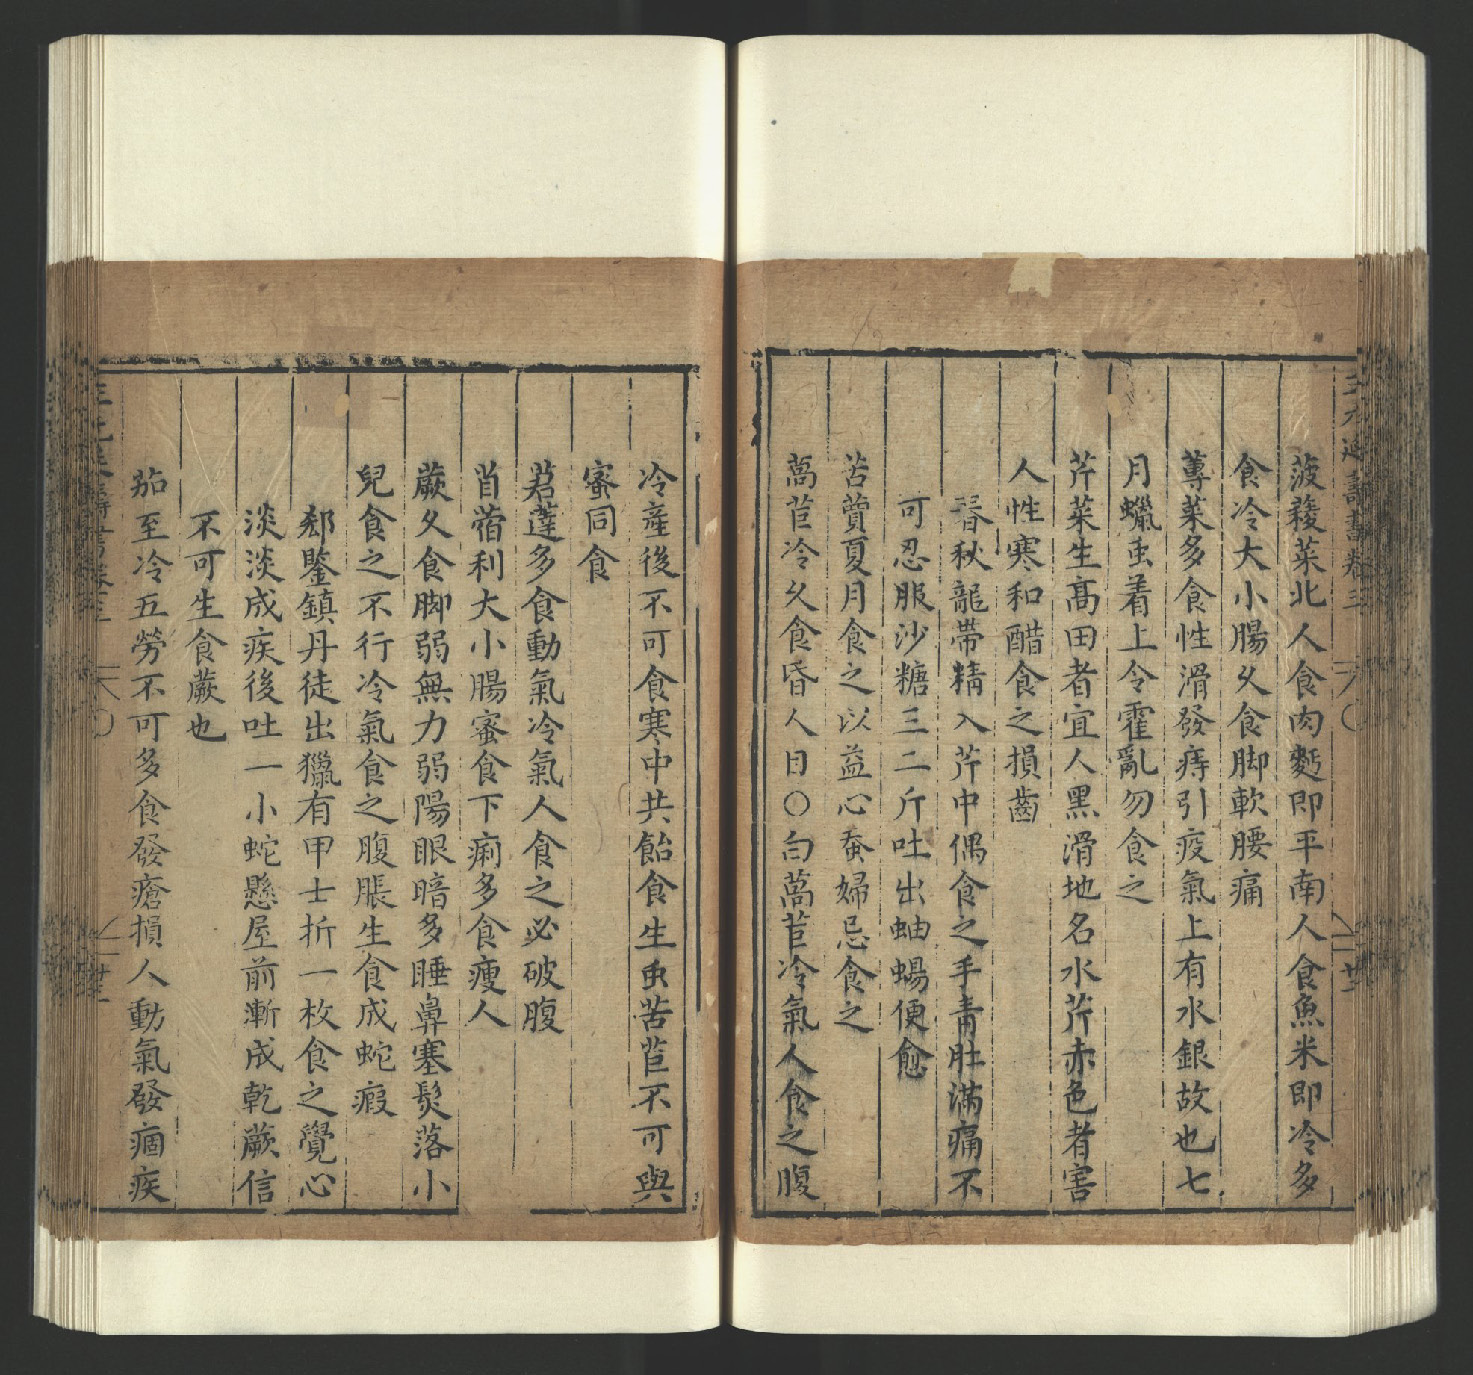 三元延壽書卷三
菠薐菜北人食肉麪即平南人食魚米即冷多
食冷大小腸久食脚軟腰痛
蓴菜多食性滑發痔引疫氣上有水銀故也七
月蠟虫着上令霍亂勿食之
芹菜生髙田者宜人黑滑地名水芹赤色者害
人性寒和醋食之損齒
春秋龍帶精入芹中偶食之手青肚滿痛不
可忍服沙糖三二斤吐出蚰蜴便愈
苦蕒夏月食之以益心蚕婦忌食之
萵苣冷久食昏人目〇白萵苣冷氣人食之腹
冷產後不可食寒中共飴食生虫苦苣不可與
蜜同食
莙薘多食動氣冷氣人食之必破腹
苜蓿利大小腸蜜食下痢多食瘦人
蕨久食脚弱無力弱陽眼暗多睡鼻塞髮落小
兒食之不行冷氣食之腹脹生食成蛇瘕
郄鑒鎮丹徒出獵有甲士折一枚食之覺心
淡淡成疾後吐一小蛇懸屋前漸成乾蕨信
不可生食蕨也
茄至冷五勞不可多食發瘡損人動氣發痼疾